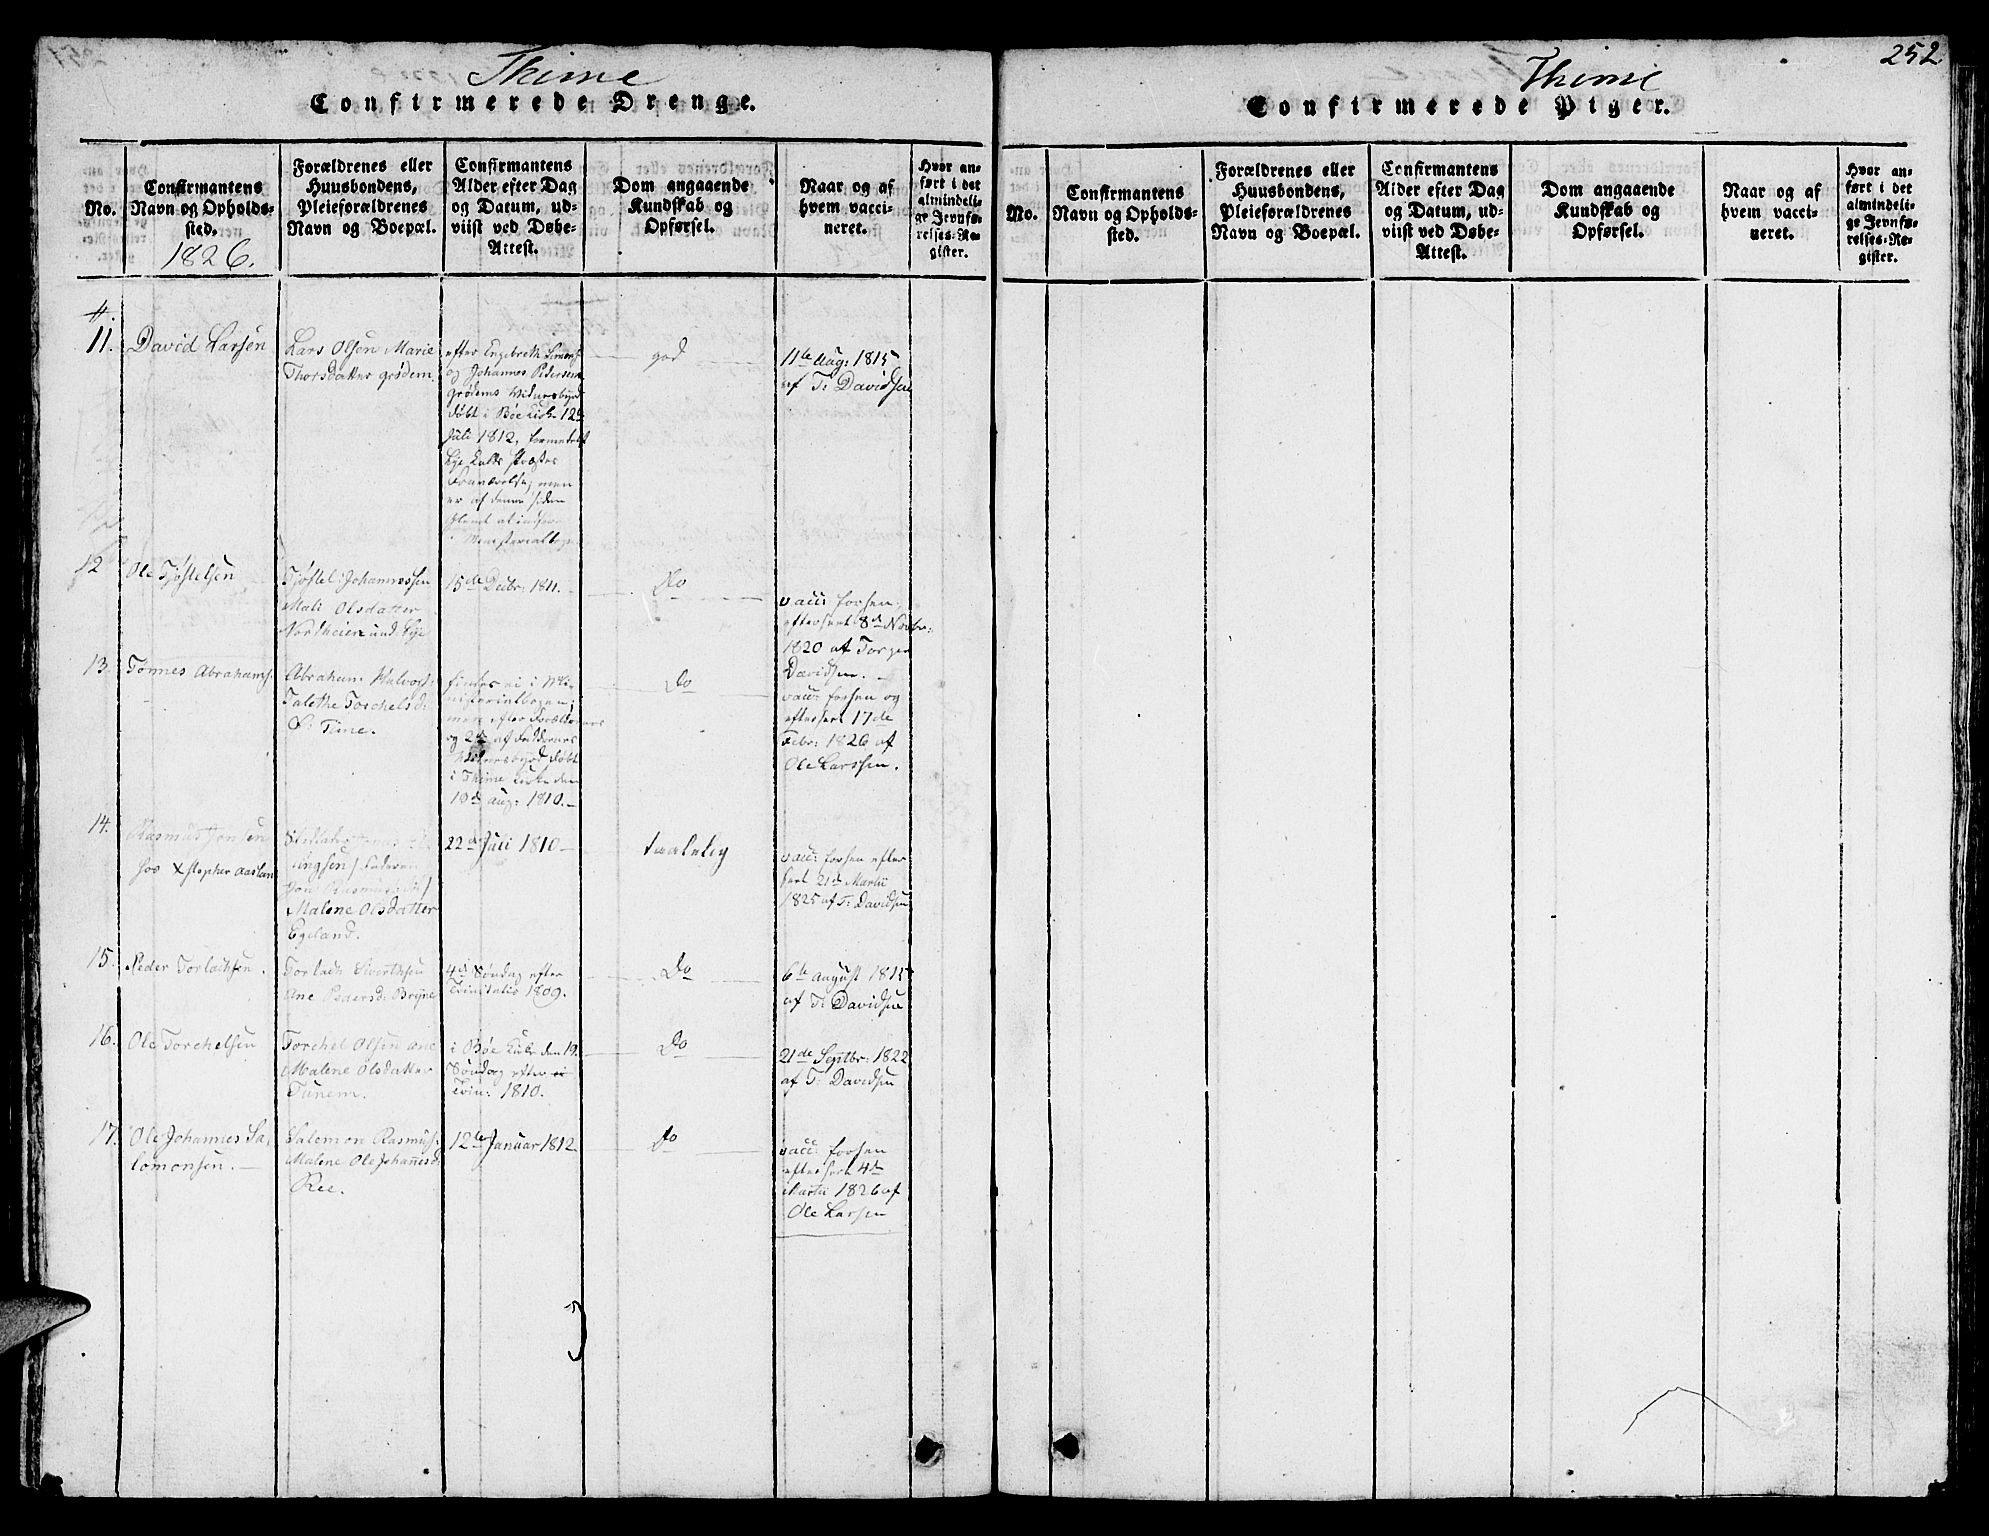 Thime
Confirmerede Drenge.
No.
Confirmantens
Navn og Opholds-
sted.
1826.
Forældrenes eller
Huusbondens,
Pleieforældrenes
Navn og Boepæl.
Confirmantens
Alder efter Dag
og Datum, ud-
viist ved Døbe-
Attest.
Dom angaaende
Kundskab og
Opførsel.
Naar og af
hvem vacci-
neret.
Hvor an-
ført i det
almindeli-
ge Jevnfø-
relses-Re-
gister.
11.
David Larsen
Lars Olsen Marie
Thorsdatter grødem.
efter Engebreth Simons:
og Johannes Pedersens
grødems Vidnesbyrd
døbt i Bøe Kirke 12te
Juli 1812, formedelst
Lye Kalds Præstes
men
er af denne siden
glemt at indføre
i Ministerialbogen
god
11te Aug: 1815
af T: Davidsen
12
Ole Tjøstelsen
Tjøstel Johannessen
Mali Olsdatter
Nordheien und: Lye
15de Decbr: 1811.
Do
vacc: forhen,
efterseet 8de Novbr:
1820 af Torger
Davidsen.
13.
Tønnes Abrahams:
Abraham Halvors:
Talethe Torchelsd:
S: Time.
findes ei i Mi-
nisterialbogen,
men efter Forældrenes
og 2de af Fadderenes
Vidnesbyrd døbt
i Thime Kirke den
19de aug: 1810.
Do
vacc: forhen og
efterseet 17de
Febr: 1826 af
Ole Larssen.
14.
Rasmus Jonsen
hos Xstopher Aasland
Jon Rasmussen/
Malene Olsdatter
Egeland.
22de Juli 1810
taalelig
vacc: forhen efter
seet 21de Martii
1825 af T: Davidsen
15.
Peder Torlachsen.
Torlach Sivertsen
Ane Pedersd: Bryne
4de Søndag efter
Trinitatis 1809.
Do
6te august 1815
af T: Davidsen
16.
Ole Torchelsen
Torchel Olsen
Malene Olsdatter
Tunem.
i Bøe Kirke den 19.
Søndag efter
Trin: 1810.
Do
21de Septbr: 1822
af T: Davidsen
17.
Ole Johannes Sa-
lomonsen.
Salemon Rasmus:
Malene Ole Johannesd:
Ree.
12te Januar 1812
Do
vacc: forhen
efterseet 4de
Martii 1826 af
Ole Larsen
252
Thime
Confirmerede Piger.
No.
Confirmantens
Navn og Opholds-
sted.
Forældrenes eller
Huusbondens,
Pleieforældrenes
Navn og Boepæl.
Confirmantens
Alder efter Dag
og Datum, ud-
viist ved Døbe-
Attest.
Dom angaaende
Kundskab og
Opførsel.
Naar og af
hvem vacci-
neret.
Hvor an-
ført i det
almindeli-
ge Jevnfø-
relses-Re-
gister.